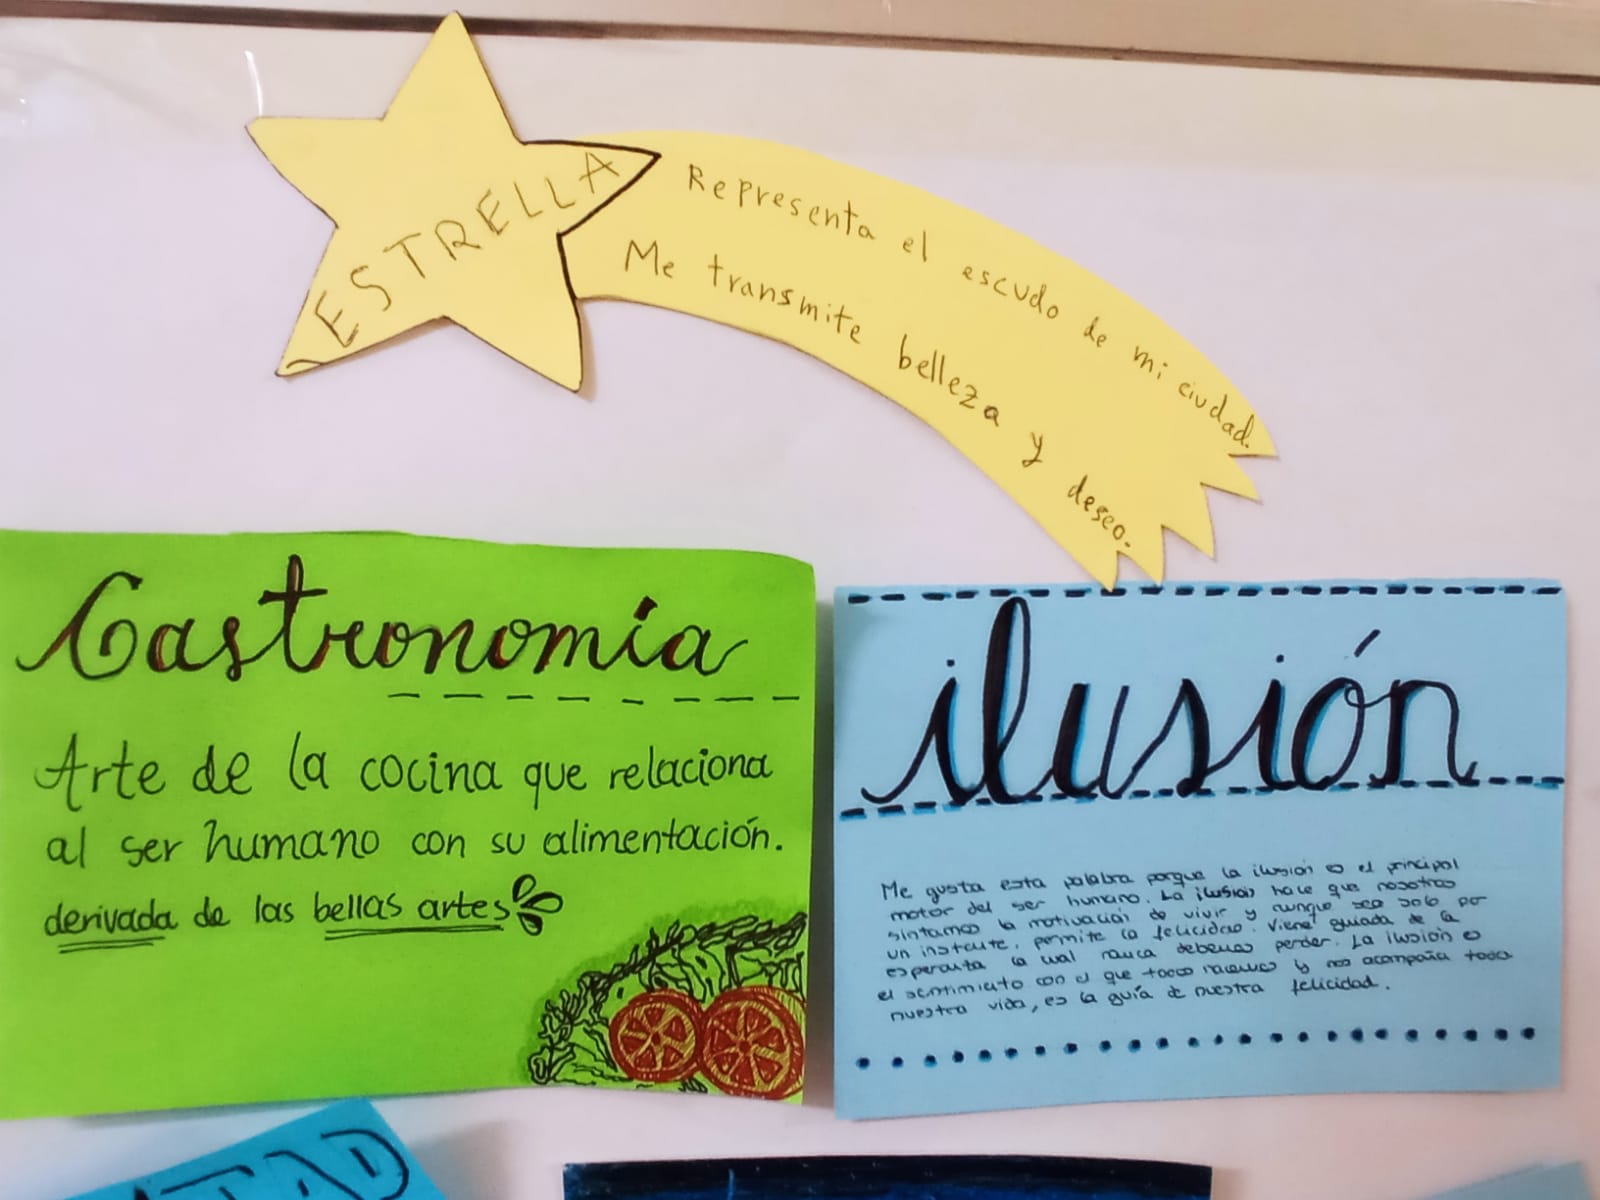 ESTRELLA
Representa el escudo de mi ciudad.
Me transmite belleza y deseo.
Gastronomía
Arte de la cocina que relaciona
al ser humano con su alimentación.
derivada de las bellas artes
ilusión
Me gusta esta palabra porque la ilusión es el principal
motor del ser humano. La ilusión hace que nosotros
sintamos la motivación de vivir y aunque sea solo por
un instante, permite la felicidad. Viene guiada de la
esperanza la cual nunca debemos perder. La ilusión es
el sentimiento con el que todos nacemos y nos acompaña toda
nuestra vida, es la guía de nuestra felicidad.